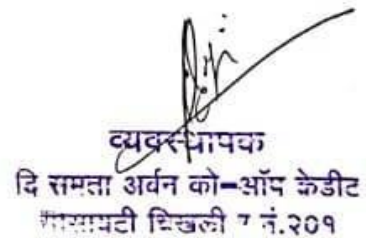 व्यवस्थापक
दि समता अर्बन को-ऑप क्रेडीट
चिखली नं.२०१